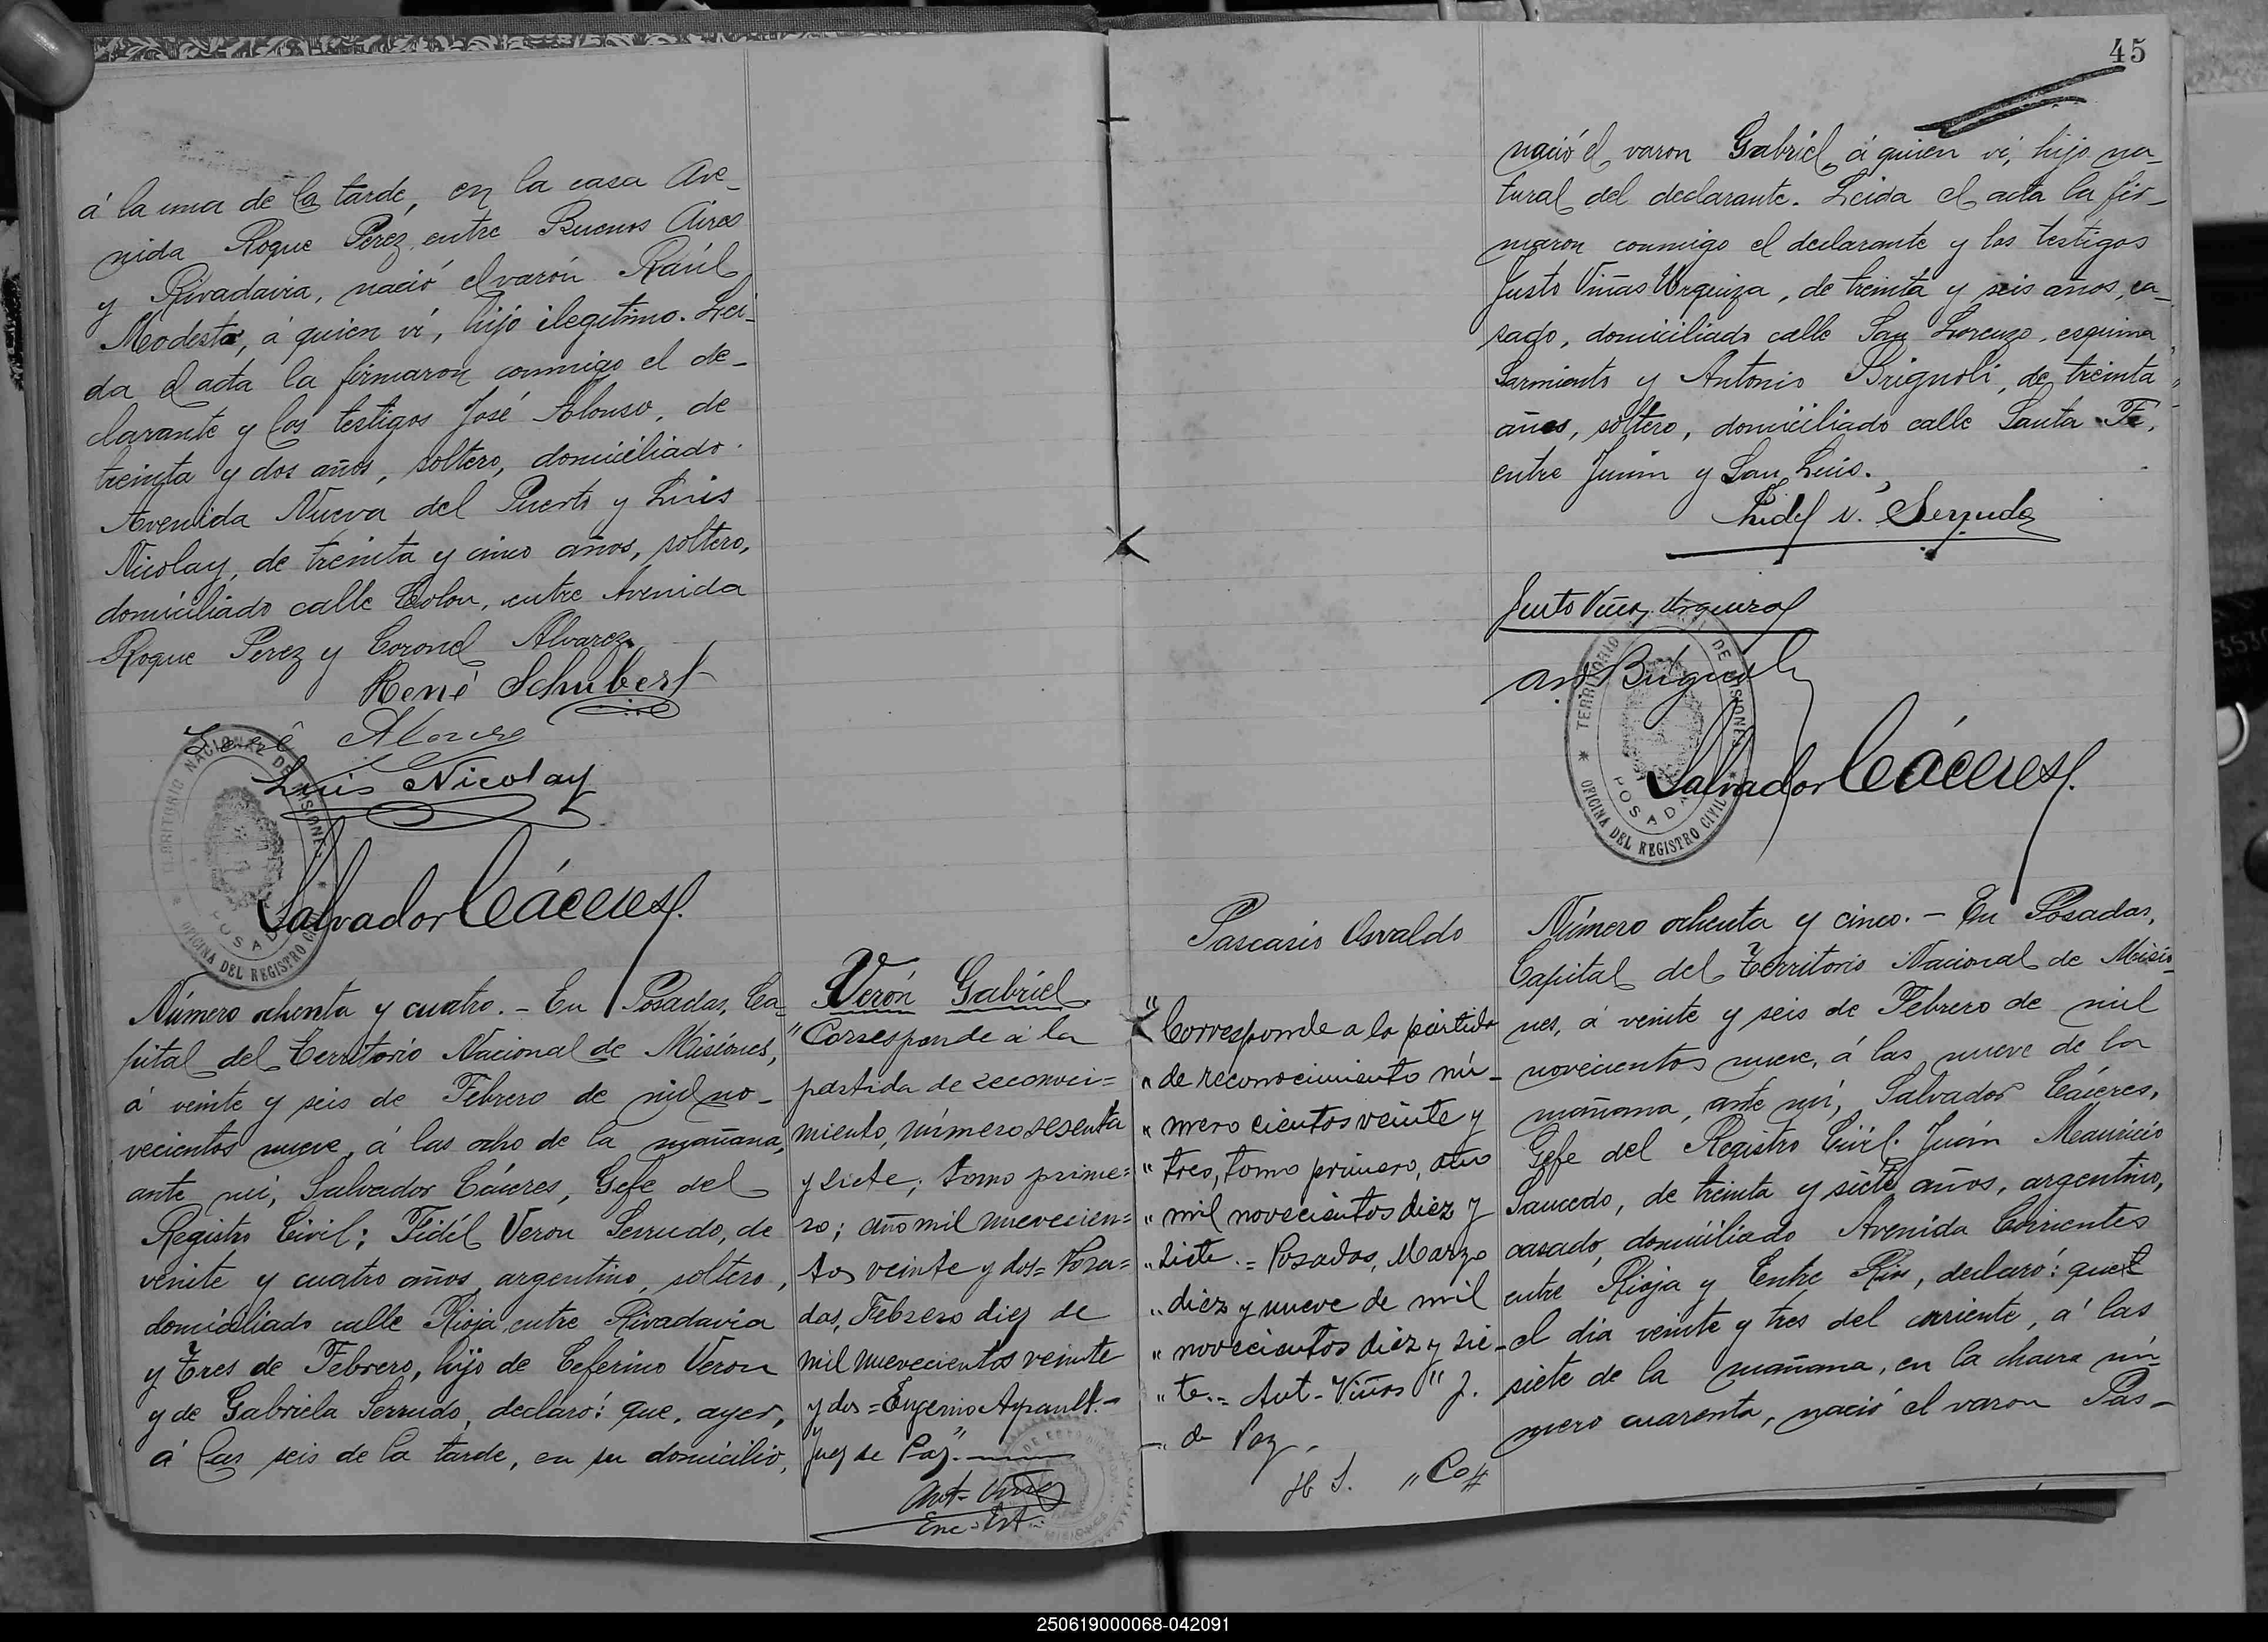 á la una de la tarde, en la casa Ave-
nida Roque Perez, entre Buenos Aires
y Rivadavia, nació el varón Raúl
Modesto, á quien ví, hijo ilegitimo. Lei-
da el acta la firmaron conmigo el de-
clarante y los testigos José Alonso, de
treinta y dos años, soltero, domiciliado
Avenida Nueva del Puerto y Luis
Nicolay, de treinta y cinco años, soltero,
domiciliado calle Colon, entre Avenida
Roque Perez y Coronel Alvarez.
René Schubert
José Alonso
Luis Nicolay
TERRITORIO NACIONAL DE MISIONES
POSADAS
OFICINA DEL REGISTRO CIVIL
Salvador Cáceres.
Número ochenta y cuatro. - En Posadas, Ca-
pital del Territorio Nacional de Misiones,
á veinte y seis de Febrero de mil no-
vecientos nueve, á las ocho de la mañana,
ante mí, Salvador Cáceres, Gefe del
Registro Civil; Fidél Veron Serrudo, de
veinte y cuatro años, argentino, soltero,
domiciliado calle Rioja, entre Rivadavia
y Tres de Febrero, hijo de Ceferino Veron
y de Gabriela Serrudo, declaró: que, ayer,
á las seis de la tarde, en su domicilio,
Verón Gabriel.
"Corresponde á la
partida de reconoci=
miento, número sesenta
y siete; tomo prime=
ro; año mil nuevecien=
tos veinte y dos= Posa=
das, Febrero diez de
mil nuevecientos veinte
y dos = Eugenio Ayrault.-
Juez de Paz".
Ant. Viñas
Enc. Est.
45
nació el varon Gabriel, á quien ví, hijo na-
tural del declarante. Leida el acta la fir-
maron conmigo el declarante y los testigos
Justo Viñas Urquiza, de treinta y seis años, ca-
sado, domiciliado calle San Lorenzo, esquina
Sarmiento y Antonio Brignoli, de treinta
años, soltero, domiciliado calle Santa Fé,
entre Junin y San Luis.
Fidel V. Serrudo
Justo Viñas Urquiza
Ant Brignoli
TERRITORIO NACIONAL DE MISIONES
POSADAS
OFICINA DEL REGISTRO CIVIL
Salvador Cáceres.
Pascasio Osvaldo
"Corresponde a la partida
" de reconocimiento nú-
" mero cientos veinte y
" tres, tomo primero, año
" mil novecientos diez y
" siete.= Posadas, Marzo
" diez y nueve de mil
" novecientos diez y sie-
" te.= Ant. Viñas" J.
-" de Paz.
H S. "Co"
Número ochenta y cinco. - En Posadas,
Capital del Territorio Nacional de Misio-
nes, á veinte y seis de Febrero de mil
novecientos nueve, á las nueve de la
mañana, ante mí, Salvador Cáceres,
Gefe del Registro Civil. Juan Mauricio
Saucedo, de treinta y siete años, argentino,
casado, domiciliado Avenida Corrientes
entre Rioja y Entre Rios, declaró: que
el dia veinte y tres del corriente, á las
siete de la mañana, en la chacra nú-
mero cuarenta, nació el varon Pas-
250619000068-042091